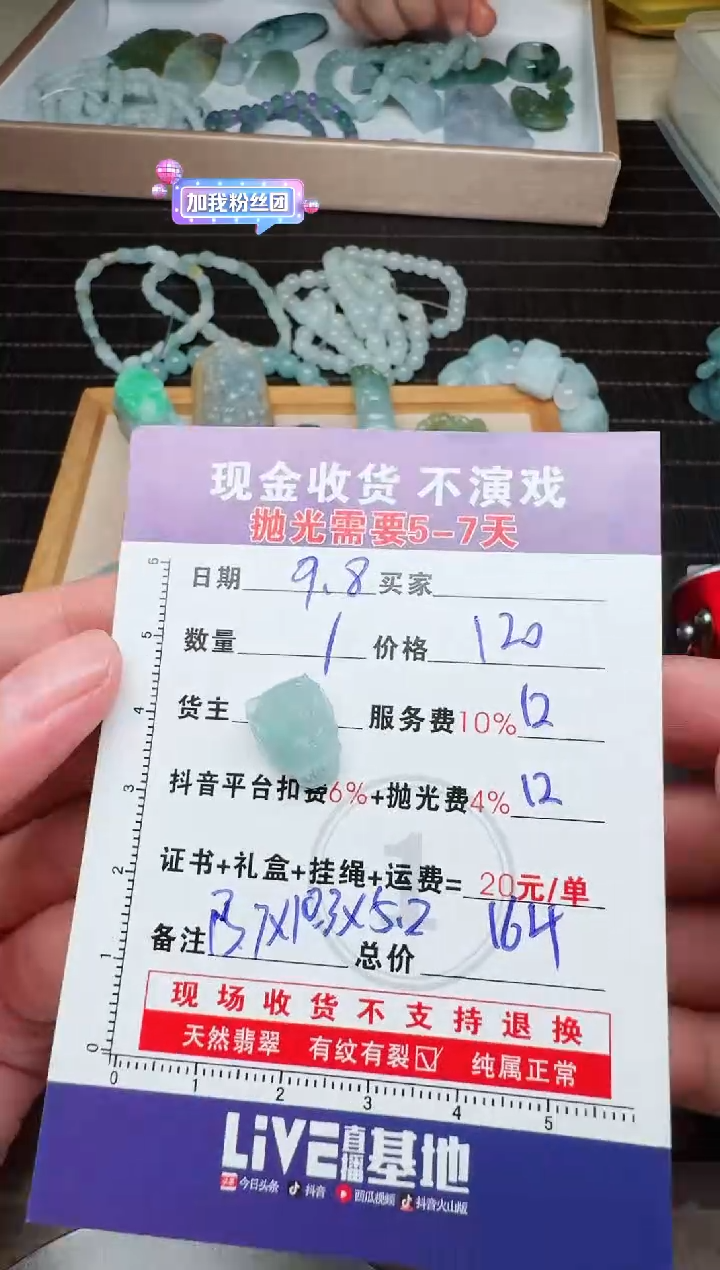 加我粉丝团
现金收货 不演戏
抛光需要5-7天
日期 9.8 买家
数量 1 价格 120
货主 服务费10% 12
抖音平台扣费6%+抛光费4% 12
证书+礼盒+挂绳+运费= 20元/单
备注 13.7X10.3X5.2 总价 164
现场收货不支持退换
天然翡翠 有纹有裂☑ 纯属正常
0 1 2 3 4 5 6
0 1 2 3 4 5
LiVE直播基地
头条 今日头条 抖音 西瓜视频 抖音火山版